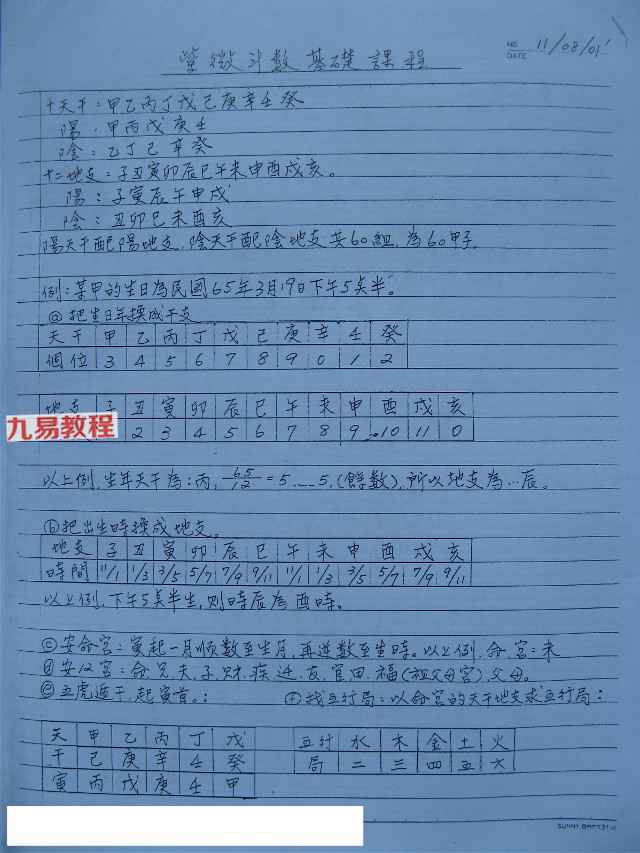 紫微斗数基礎課程
NO. DATE 11/08/01'
十天干:甲乙丙丁戊己庚辛壬癸
陽:甲丙戊庚壬
陰:乙丁己辛癸
十二地支:子丑寅卯辰巳午未申酉戌亥。
陽:子寅辰午申戌
陰:丑卯巳未酉亥
陽天干配陽地支,陰天干配陰地支共60組,為60甲子.
例:某甲的生日為民國65年3月19日下午5矣半。
@把生日年換成干支
天干 甲 乙 丙 丁 戊 己 庚 辛 壬 癸
個位 3 4 5 6 7 8 9 0 1 2
地支 子 丑 寅 卯 辰 巳 午 未 申 酉 戌 亥
九易教程 2 3 4 5 6 7 8 9 10 11 0
以上例,生年天干為:丙, 65/12=5……5,(餘数),所以地支為…辰。
ⓑ把出生時換成地支。
地支 子 丑 寅 卯 辰 巳 午 未 申 酉 戌 亥
時間 11/1 1/3 3/5 5/7 7/9 9/11 11/1 1/3 3/5 5/7 7/9 9/11
以上例,下午5矣半生,則時辰為酉時。
ⓒ安命宮:寅起一月順数至生月,再逆数至生時。以上例,命宮:未
ⓓ安12宮:命.兄.夫.子.財.疾.迁.友.官.田.福(祖父母宮).父母.
ⓔ五虎遁干,起寅首。: ⓕ找五行局:以命宮的天干地支求五行局:
天 甲 乙 丙 丁 戊 五行 水 木 金 土 火
干 己 庚 辛 壬 癸 局 二 三 四 五 六
寅 丙 戊 庚 壬 甲